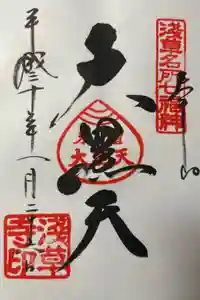 浅草名所七福神
奉拝
大黒天
平成三十年一月二十五日
浅草寺印